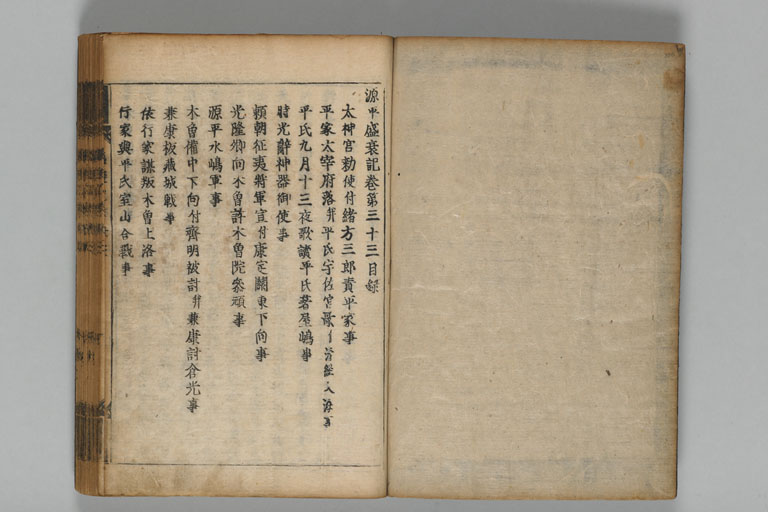 源平盛衰記巻第三十三目録
太神宮勅使付緒方三郎責平家事
平家太宰府落并平氏宇佐宮歌付清経入海事
平氏九月十三夜歌読平氏著屋嶋事
時光辭神器御使事
頼朝征夷将軍宣付康定關東下向事
光隆卿向木曽許木曽院参頑事
源平水嶋軍事
木曽備中下向付齊明被討并兼康討倉光事
兼康板蔵城戦事
依行家謀叛木曽上洛事
行家與平氏室山合戰事